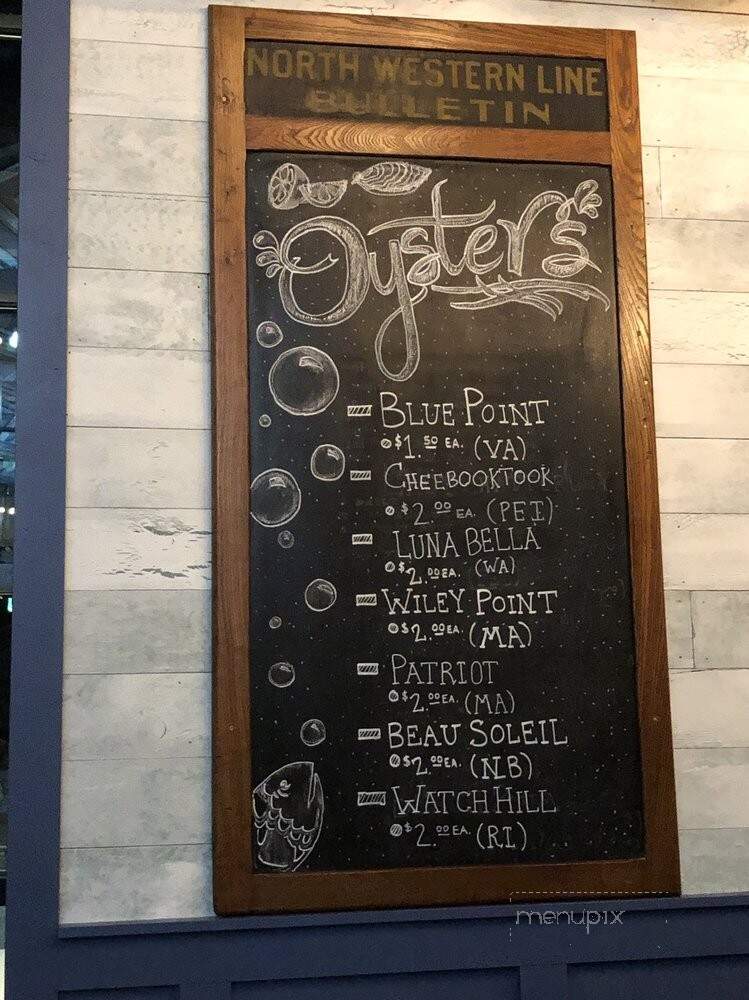 NORTH WESTERN LINE
BULLETIN
Oysters
BLUE POINT
$1.50 EA. (VA)
CHEEBOOKTOOK
$2.00 EA. (PEI)
LUNA BELLA
$2.00 EA. (WA)
WILEY POINT
$2.00 EA. (MA)
PATRIOT
$2.00 EA. (MA)
BEAU SOLEIL
$2.00 EA. (NB)
WATCH HILL
$2.00 EA. (RI)
menupix